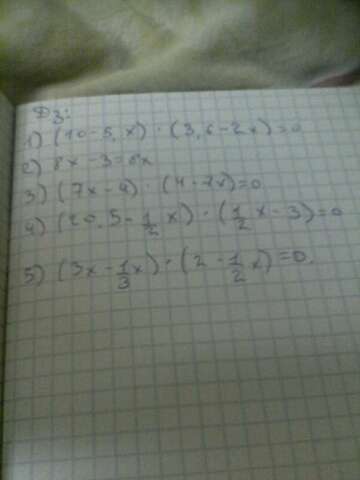 ДЗ:
1) (10-5, x) · (3,6-2x)=0
2) 8x-3=6x
3) (7x-4) · (4-7x)=0
4) (20,5-1/2 x) · (1/2 x-3)=0
5) (3x-1/3 x) · (2-1/2 x)=0.